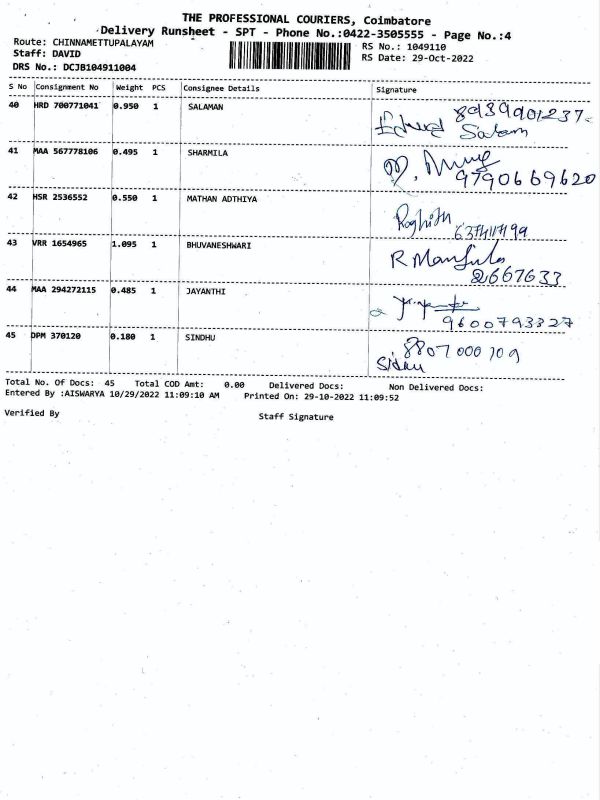 THE PROFESSIONAL COURIERS, Coimbatore
Delivery Runsheet - SPT - Phone No.:0422-3505555 - Page No.:4
Route: CHINNAMETTUPALAYAM
RS No.: 1049110
Staff: DAVID
RS Date: 29-Oct-2022
DRS No.: DCJB104911004
S No Consignment No Weight PCS Consignee Details Signature
40 HRD 700771041 0.950 1 SALAMAN
8939901237
Salam
41 MAA 567778106 0.495 1 SHARMILA
9790669620
42 HSR 2536552 0.550 1 MATHAN ADTHIYA
43 VRR 1654965 1.095 1 BHUVANESHWARI
R Manjula
2667633
44 MAA 294272115 0.485 1 JAYANTHI
9600793327
45 DPM 370120 0.180 1 SINDHU
8807000109
Total No. Of Docs: 45 Total COD Amt: 0.00 Delivered Docs: Non Delivered Docs:
Entered By :AISWARYA 10/29/2022 11:09:10 AM Printed On: 29-10-2022 11:09:52
Verified By Staff Signature